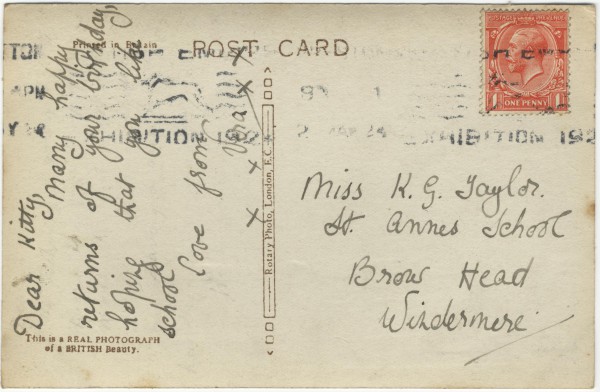 Printed in Britain
POST CARD
BRITISH EMP
EXHIBITION 192
2 MAY 24
EXHIBITION 192
ONE PENNY
Dear Kitty,
Many happy
returns of your birthday,
hoping that you like
school
love from
Vera
x x x x
Rotary Photo, London, E.C.
Miss K. G. Taylor.
St. Annes School
Brow Head
Windermere
This is a REAL PHOTOGRAPH
of a BRITISH Beauty.